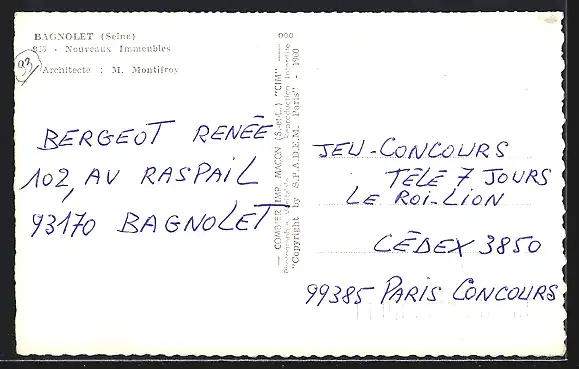 BAGNOLET (Seine)
- Nouveaux Immeubles
Architecte : M. Montifroy
93
BERGEOT RENÉE
102, AV RASPAIL
93170 BAGNOLET
— COMBIER IMP. MACON (S.-et-L.) "CIM" —
Reproduction Interdite
"Copyright by S.P.A.D.E.M. Paris" - 1960
JEU-CONCOURS
TÉLÉ 7 JOURS
LE ROI-LION
CÉDEX 3850
99385 PARIS CONCOURS